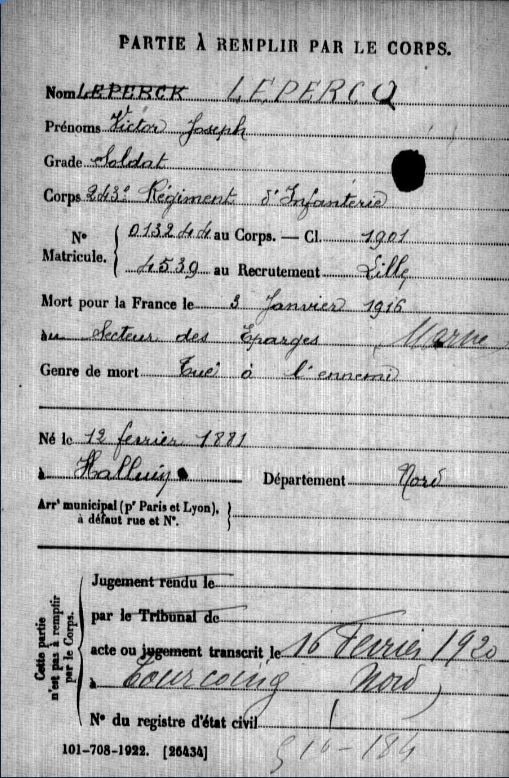 PARTIE À REMPLIR PAR LE CORPS.
Nom LEPERCK LEPERCQ
Prénoms Victor Joseph
Grade Soldat
Corps 243e Régiment d'Infanterie
N° Matricule. { 013244 au Corps. — Cl. 1901
4539 au Recrutement Lille
Mort pour la France le 3 Janvier 1916
au Secteur des Eparges (Marne)
Genre de mort Tué à l'ennemi
Né le 12 fevrier 1881
à Halluin Département Nord
Arrt municipal (pr Paris et Lyon), à défaut rue et N°. }
Cette partie n'est pas à remplir par le Corps.
Jugement rendu le
par le Tribunal de
acte ou jugement transcrit le 16 Fevrier 1920
à Tourcoing Nord)
N° du registre d'état civil
101-708-1922. [26434]